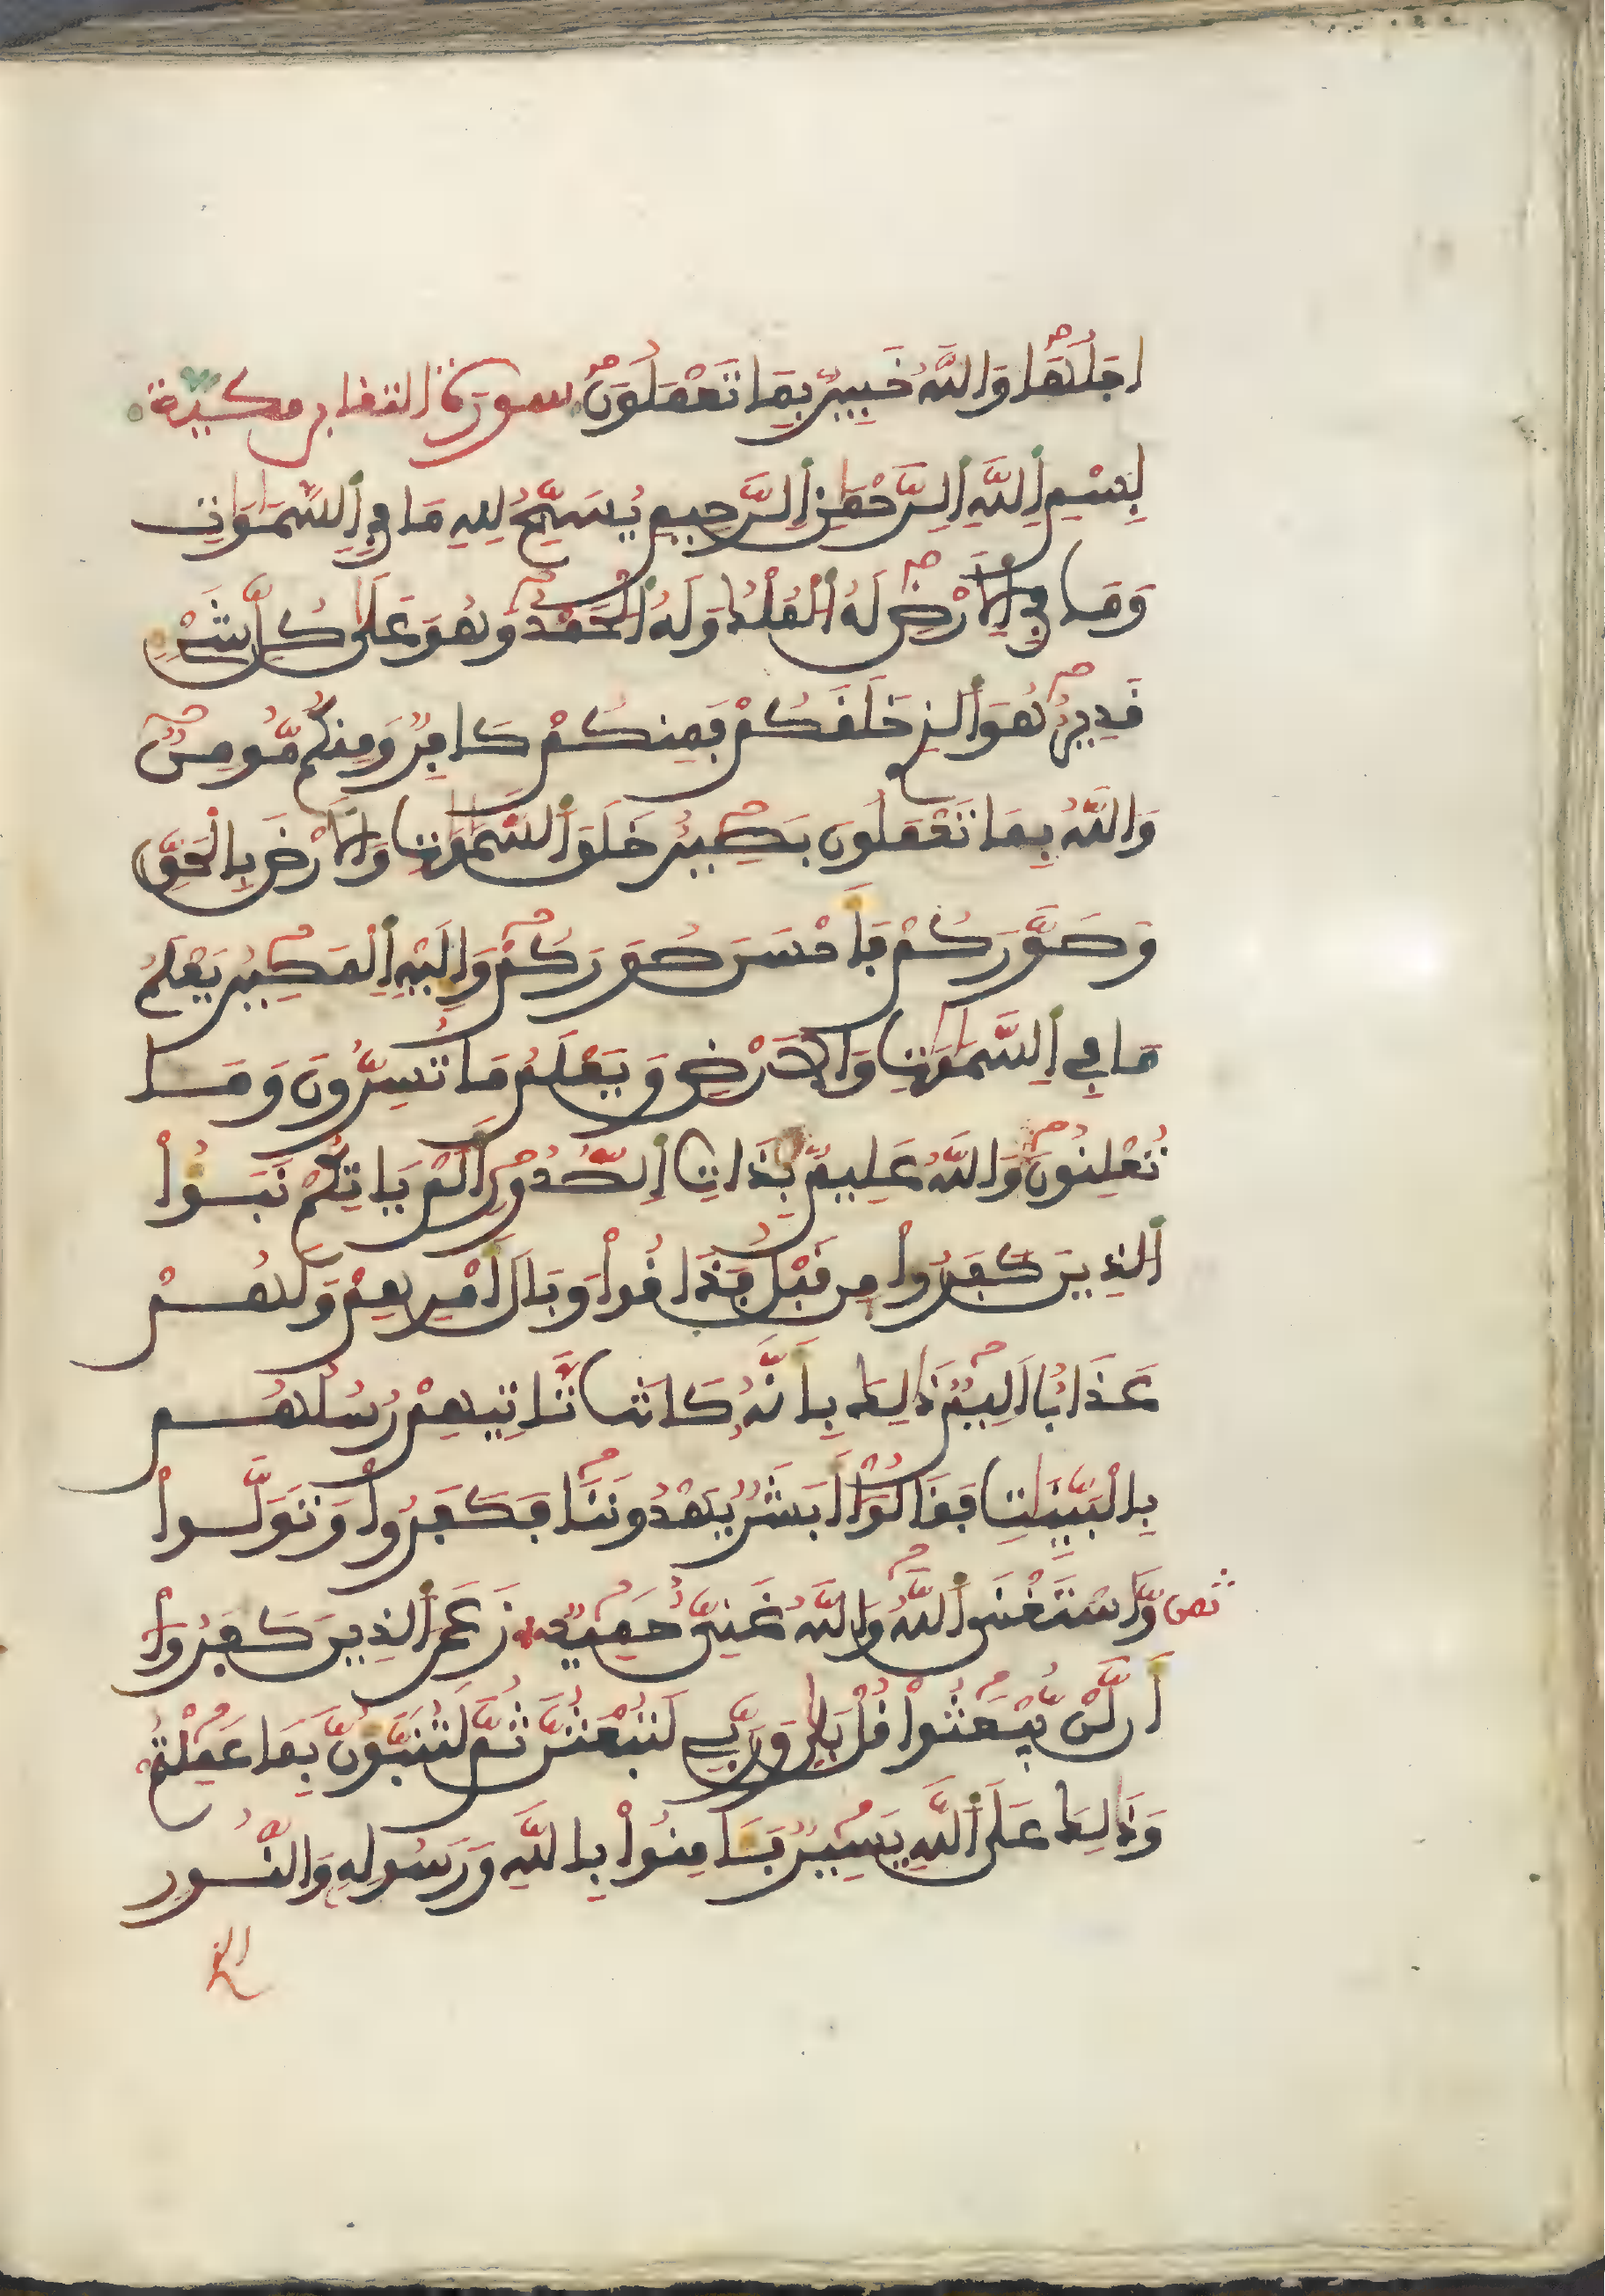 اجَلُهَا وَاللَّهُ خَبِيرٌ بِمَا تَعْمَلُونَ سورة التغابن مكية
بِسْمِ اِللَّهِ اِلرَّحْمَٰنِ اِلرَّحِيمِ يُسَبِّحُ لِلهِ مَا فِے اِلسَّمَٰوَٰتِ
وَمَا فِے اِلَارْضِ لَهُ اُلْمُلْكُ وَلَهُ اُلْحَمْدُ وَهُوَ عَلَىٰ كُلِّ شَےْءٍ
قَدِيرٌ هُوَ اَلذِے خَلَقَكُمْ فَمِنكُمْ كَافِرٌ وَمِنكُم مُّومِنٌ
وَاللَّهُ بِمَا تَعْمَلُونَ بَصِيرٌ خَلَقَ اَلسَّمَٰوَٰتِ وَالَارْضَ بِالْحَقِّ
وَصَوَّرَكُمْ فَأَحْسَنَ صُوَرَكُمْ وَإِلَيْهِ اِلْمَصِيرُ يَعْلَمُ
مَا فِے اِلسَّمَٰوَٰتِ وَالَارْضِ وَيَعْلَمُ مَا تُسِرُّونَ وَمَا
تُعْلِنُونَ وَاللَّهُ عَلِيمٌ بِذَاتِ اِلصُّدُورِ أَلَمْ يَاتِكُمْ نَبَؤُاْ
اُلذِينَ كَفَرُواْ مِن قَبْلُ فَذَاقُواْ وَبَالَ أَمْرِهِمْ وَلَهُمْ
عَذَابٌ اَلِيمٌ ذَٰلِكَ بِأَنَّهُ كَانَت تَّاتِيهِمْ رُسُلُهُم
بِالْبَيِّنَٰتِ فَقَالُوٓاْ أَبَشَرٌ يَهْدُونَنَا فَكَفَرُواْ وَتَوَلَّواْ
ثمن وَّاسْتَغْنَى اَللَّهُ وَاللَّهُ غَنِيٌّ حَمِيدٌ زَعَمَ اَلذِينَ كَفَرُوٓاْ
أَن لَّنْ يُّبْعَثُواْ قُلْ بَلَىٰ وَرَبِّے لَتُبْعَثُنَّ ثُمَّ لَتُنَبَّؤُنَّ بِمَا عَمِلْتُمْ
وَذَٰلِكَ عَلَى اَللَّهِ يَسِيرٌ فَـَٔامِنُواْ بِاللَّهِ وَرَسُولِهِ وَالنُّورِ
الذ